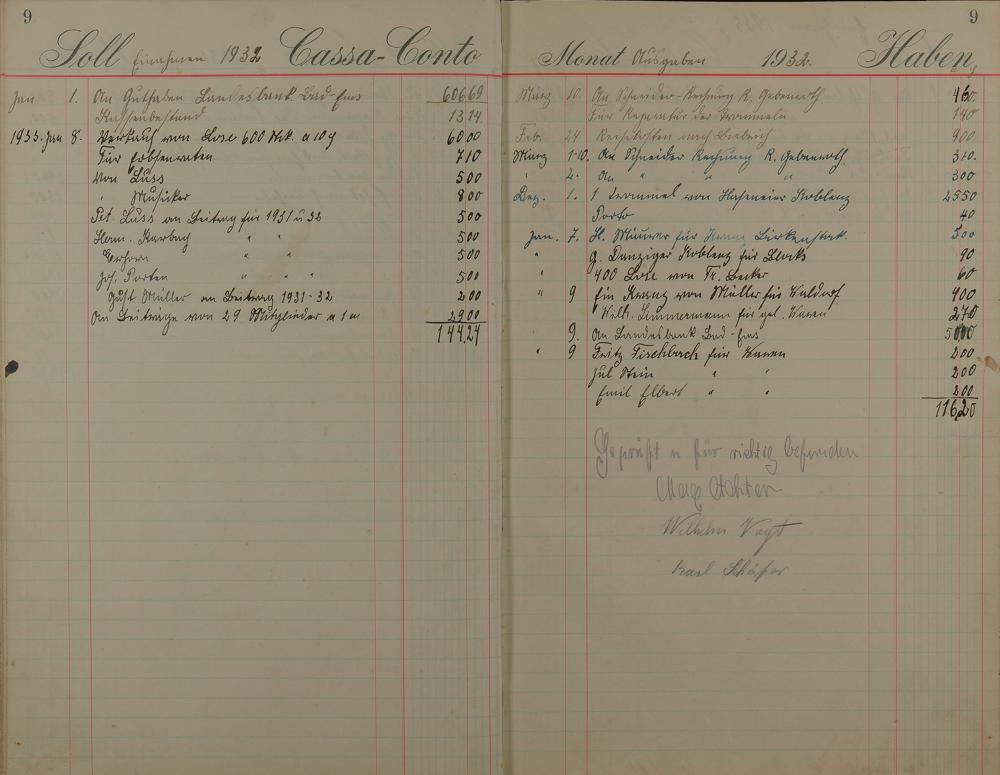 9
Soll Einahmen 1932 Cassa-Conto
Jan 1. An Guthaben Landesbank Bad-Ems 60669
Kassenbestand 1314
1933. Jan 8. Verkauf von Lose 600 Stck. a 10 9 6000
Für Erbsenraten 710
Von Luss 500
" Musiker 800
Pet. Luss an Beitrag für 1931 u 32 500
Herm. Karbach " " 500
" " 500
Joh. Porten " " " 500
Gust Müller an Beitrag 1931-32 200
An Beiträge von 29 Mitglieder a 1 m 2900
14424
9
Monat Ausgaben 1932. Haben
März 10. An Schneider-Rechnung R. Gebenroth 460
Für Reparatur der Trommeln 140
Feb. 24 Reisekosten nach Biebrich 900
März 1-10. An Schneider Rechnung R. Gebenroth 310.
" 2. An " " " 300
Dez. 1. 1 Trommel von Hofmeier Koblenz 2550
Porto 40
Jan. 7. H. Maurer für Kranz Birkenstock. 500
" G. Danziger Koblenz für Blocks 90
" 400 Lose von Fr. Becker 60
" 9 Ein Kranz von Müller für Waldorf 400
Wilh. Zimmermann für gel. Waren 270
9. An Landesbank Bad-Ems 5000
" 9 Fritz Fischbach für Waren 200
Jul Stein " " 200
Emil Elbert " " 200
11620
Geprüft u für richtig befunden
Wilhelm Vogt
Karl Schäfer